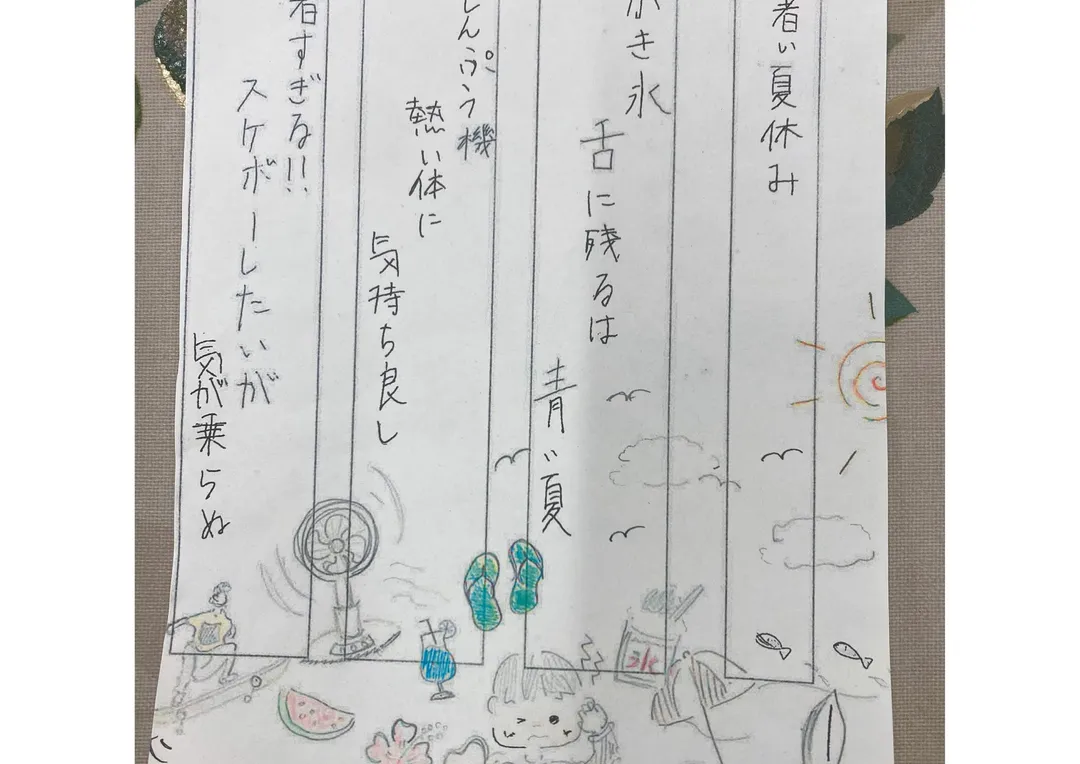 暑い夏休み
かき氷
舌に残るは
青い夏
せんぷう機
熱い体に
気持ち良し
暑すぎる!!
スケボーしたいが
気が乗らぬ
氷